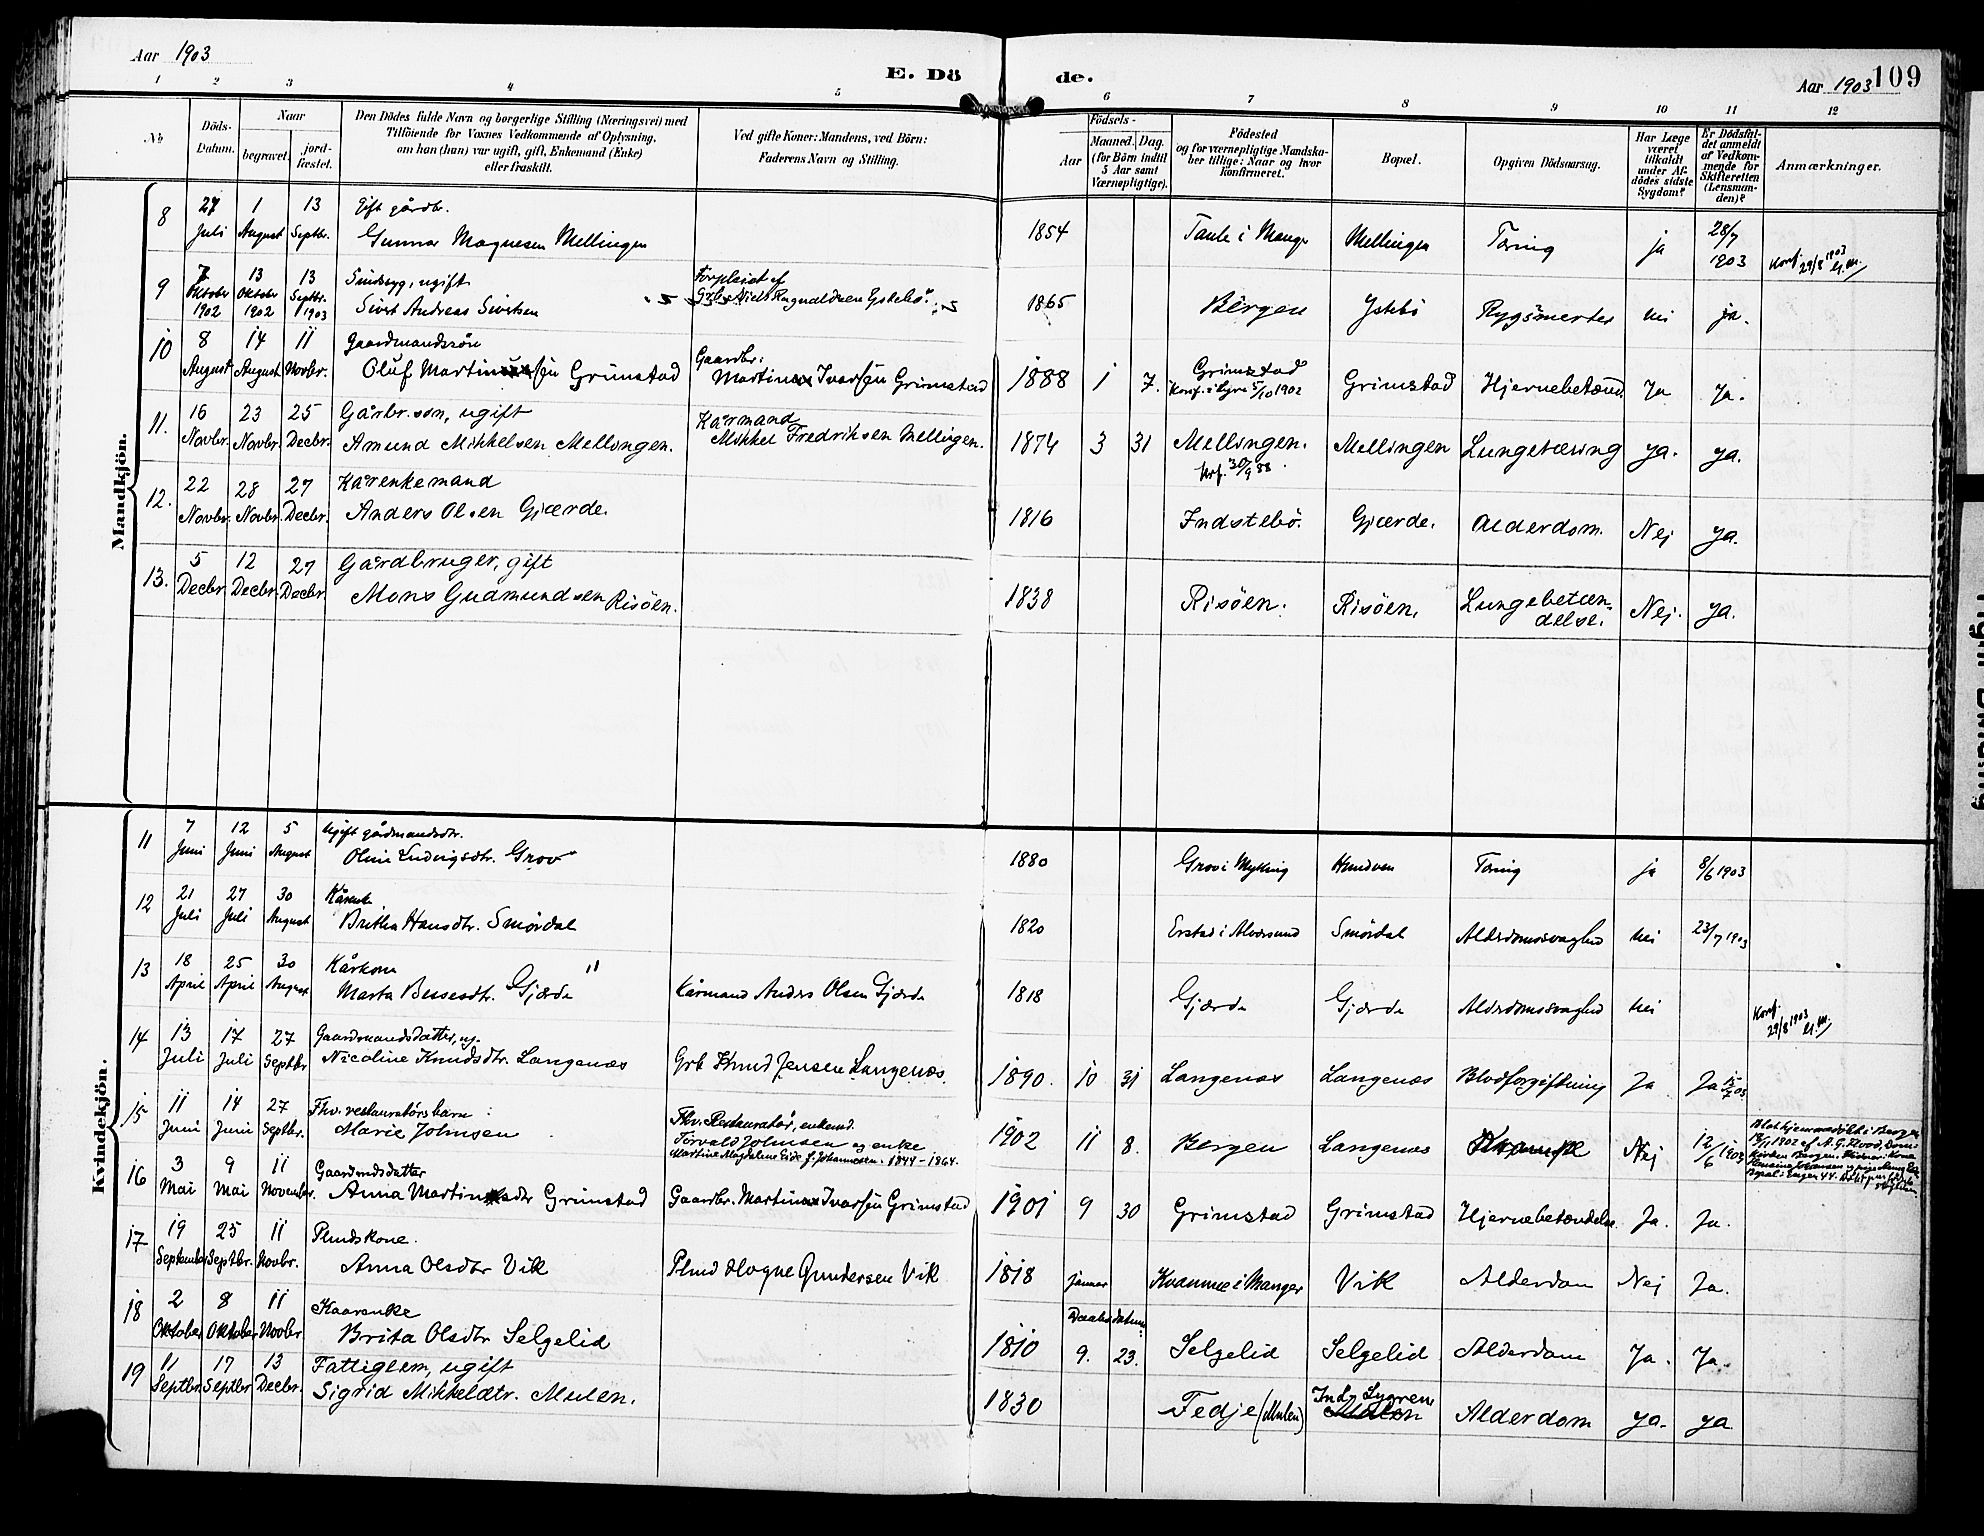 Aar 1903
E. Dö de.
Aar 1903 109
1 2 3 4 5 6 7 8 9 10 11 12
No
Döds-
Datum.
Naar
begravet.
jord-
fæstet.
Den Dödes fulde Navn og borgerlige Stilling (Næringsvei) med
Tilföiende for Voxnes Vedkommende af Oplysning,
om han (hun) var ugift, gift, Enkemand (Enke)
eller fraskilt.
Ved gifte Koner: Mandens, ved Börn:
Faderens Navn og Stilling.
Födsels-
Aar
Maaned. Dag.
(for Börn indtil
5 Aar samt
Værnepligtige).
Födested
og for værnepligtige Mandska-
ber tillige: Naar og hvor
konfirmeret.
Bopæl.
Opgiven Dödsaarsag.
Har Læge
været
tilkaldt
under Af-
dödes sidste
Sygdom?
Er Dödsfal-
det anmeldt
af Vedkom-
mende for
Skifteretten
(Lensman-
den)?
Anmærkninger.
Mandkjön.
8 27 Juli 1 August 13 Septbr. Gift gårdbr.
Gunnar Magnesen Mellingen 1854 Taule i Manger Mellingen Tæring ja 28/7 1903 Konf. 29/8 1903
9 7 Oktober 1902 13 Oktober 1902 13 Septbr. 1903 Sindssyg, ugift
Sivert Andreas Sivertsen Forpleiet af
Grb. Niels Ragnvaldsen Ystebö 1865 Bergen Ystebö Rygsmerter nei ja.
10 8 August 14 August 11 Novbr. Gaardmandssön
Oluf Martinussen Grimstad Gaardbr:
Martinus Ivarsen Grimstad 1888 1 7. Grimstad
Konf. i Lyre 5/10 1902 Grimstad Hjernebetænd. Ja Ja.
11. 16 Novbr. 23 Novbr. 25 Decbr. Gårbr. sön, ugift
Amund Mikkelsen Mellingen. Kårmand
Mikkel Fredriksen Mellingen. 1874 3 31 Mellingen.
Krf. 30/9 88. Mellingen Lungetæring ya. ya.
12. 22 Novbr. 28 Novbr. 27 Decbr. Kårenkemand
Anders Olsen Gjærde. 1816 Indstebö. Gjærde. Alderdom. Nej ya.
13. 5 Decbr. 12 Decbr. 27 Decbr. Gårdbruger, gift
Mons Gudmundsen Risöen. 1838 Risöen. Risöen. Lungebetæn-
delse. Nej. ya.
Kvindekjön.
11 7 Juni 12 Juni 5 August Ugift gårdmandsdtr.
Oline Ludvigsdtr. Grov 1880 Grov i Myking Hundven Tæring ja 8/6 1903
12 21 Juli 27 Juli 30 August Kårenke
Britha Hansdtr. Smördal 1820 Erstad i Alversund Smördal Alderdomssvaghed nei 23/7 1903
13 18 April 25 April 30 August Kårkone
Marta Bessesdtr. Gjærde Kårmand Anders Olsen Gjærde 1818 Gjærde Gjærde Alderdomssvaghed nei Konf. 29/8 1903
14 13 Juli 17 Juli 27 Septbr Gaardmandsdatter, ug.
Nicoline Knudsdtr. Langenæs Grb Knud Jensen Langenæs. 1890. 10 31 Langenæs Langenæs Blodforgiftning Ja Ja
15 11 Juni 14 Juni 27 Septbr. Fhv. restauratörs barn
Marie Johnsen Fhv. Restauratör, enkemd.
Torvald Johnsen og enke
Martine Magdalene Eide f. Johannesen. 1844-1864. 1902 11 8. Bergen Langenæs Nej 12/6 1903
16 3 Mai 9 Mai 11 November. Gaardmdsdatter
Anna Martinsdtr Grimstad Gaardbr. Martinus Ivarsen Grimstad 1901 9 30 Grimstad Grimstad Hjernebetændelse. Ja. Ja.
17 19 September 25 Septbr. 11 Novbr. Pludskone.
Anna Olsdtr Vik Plud Hogne Gundersen Vik 1818 januar Kvamme i Manger Vik Alderdom Nej Ja.
18 2 Oktober 8 Oktober 11 Novbr. Kaarenke
Brita Olsdtr Selgelid 1810 Daabs datum: 9. 23. Selgelid Selgelid Alderdom Ja. Ja.
19 11 Septbr. 17 Septbr 13 Decbr. Fattiglem, ugift
Sigrid Mikkeldtr. Mulen. 1830 Fedje (Mulen) Ind. Lygren
Mulen Alderdom ya. ya